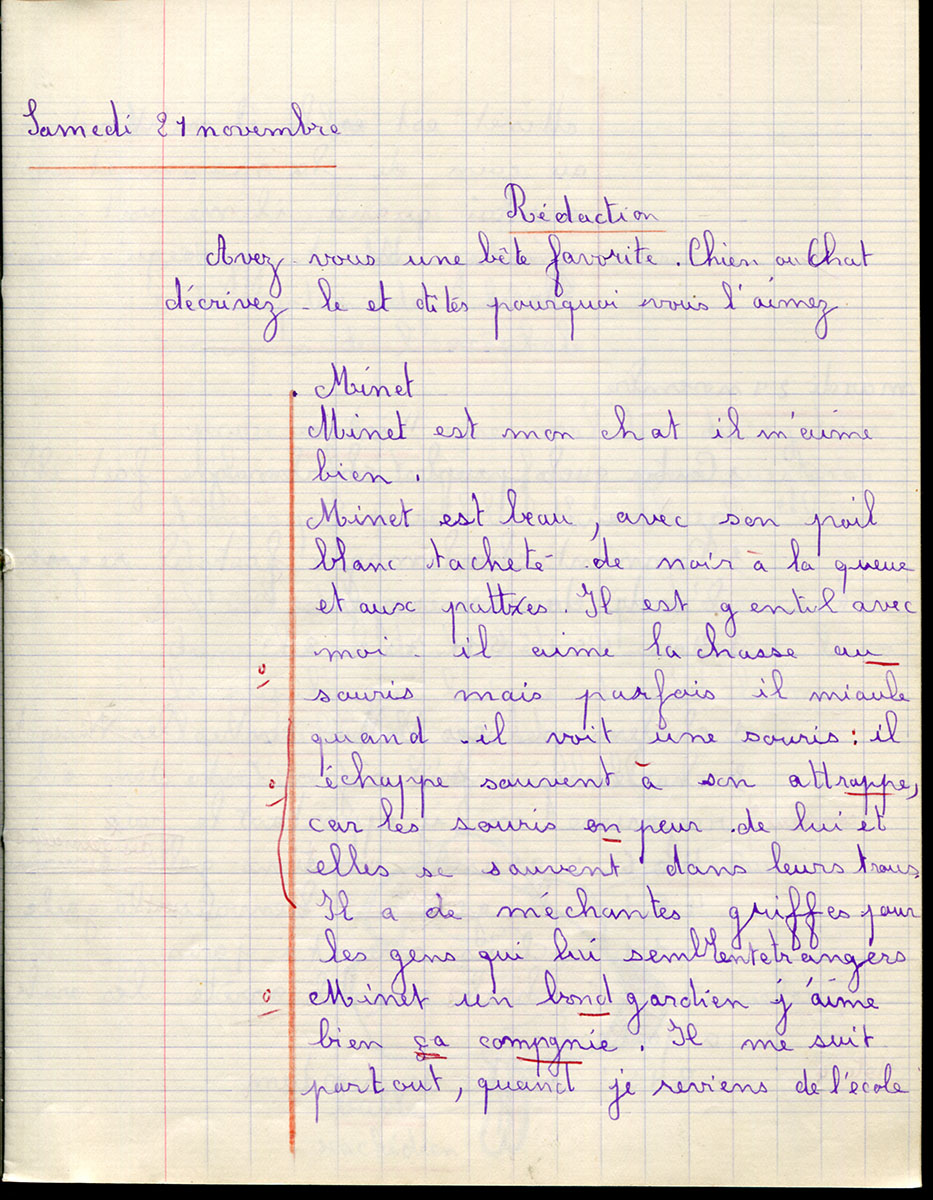 Samedi 21 novembre
Rédaction
Avez-vous une bête favorite. Chien ou Chat
décrivez-le et dîtes pourquoi vous l'aimez
Minet
Minet est mon chat il m'aime
bien.
Minet est beau, avec son poil
blanc tacheté de noir à la queue
et aux pattes. Il est gentil avec
moi. il aime la chasse au
souris mais parfois il miaule
quand il voit une souris : il
échappe souvent à son attrappe,
car les souris on peur de lui et
elles se sauvent dans leurs trous
Il a de méchantes griffes pour
les gens qui lui semblent etrangers
Minet un bond gardien j'aime
bien ça compgnie. Il me suit
partout, quand je reviens de l'école